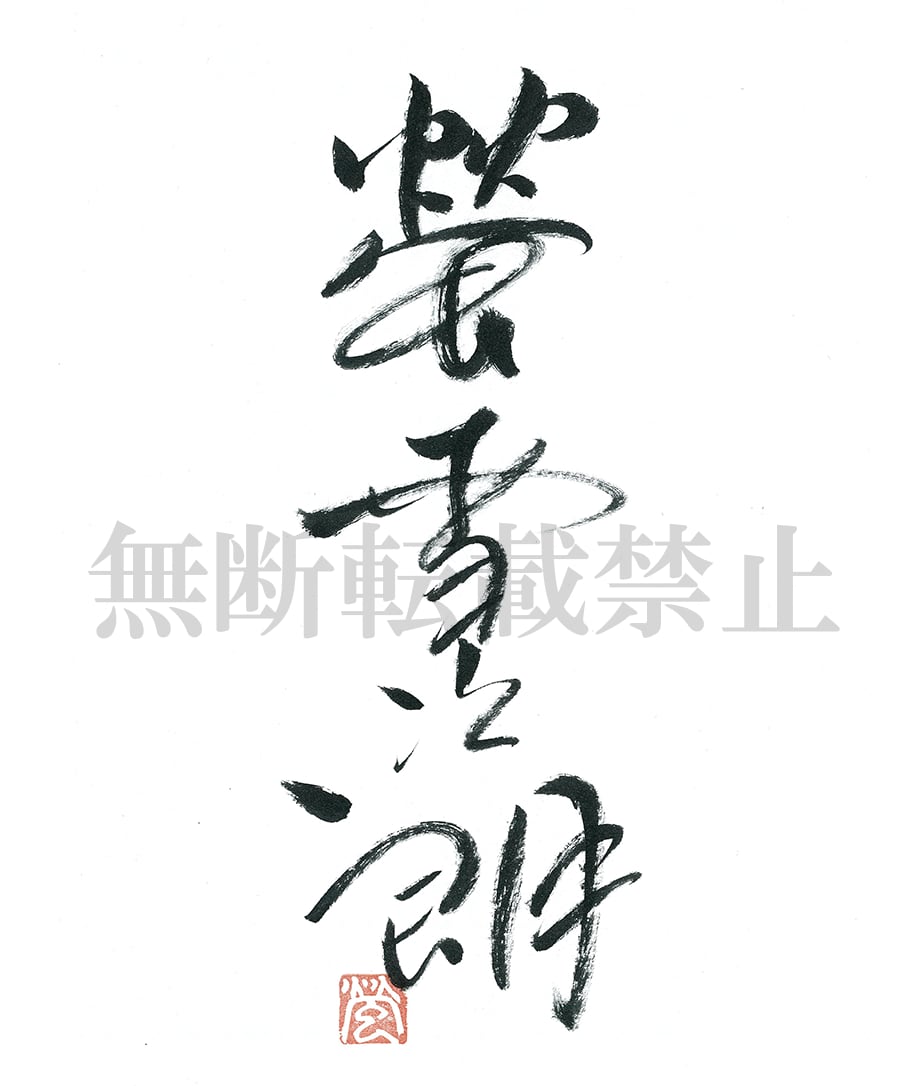 螢雪次朗
無断転載禁止